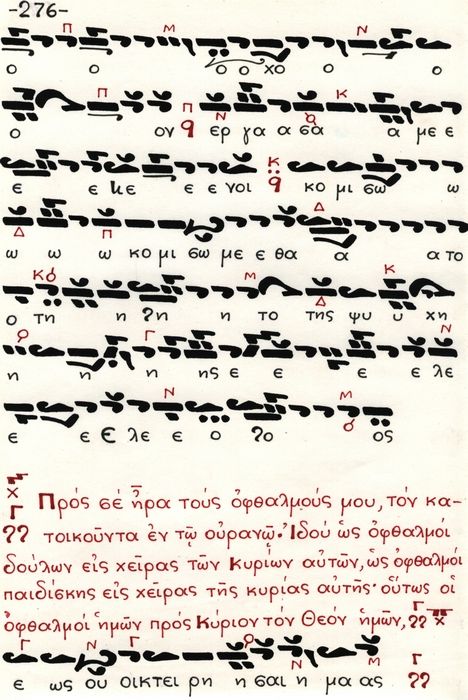 -276-
ο ο ο ο χο ο ο
ο ον ερ γα α σα α με ε
ε ε κε ε ε νοι κο μι σω ω
ω ω ω κο μι σω με ε θα α α το
ο τη η ζη η το της ψυ υ χη
η η η ης ε ε ε ε λε
ε ε Ε λε ε ο ζο ος
Πρός σέ ἦρα τούς ὀφθαλμούς μου, τόν κα-
τοικοῦντα ἐν τῷ οὐρανῷ. Ἰδού ὡς ὀφθαλμοί
δούλων εἰς χεῖρας τῶν Κυρίων αὐτῶν, ὡς ὀφθαλμοί
παιδίσκης εἰς χεῖρας τῆς κυρίας αὐτῆς· οὕτως οἱ
ὀφθαλμοί ἡμῶν πρός Κύριον τόν Θεόν ἡμῶν,
ε ως ου οικτει ρη η σαι η μα ας